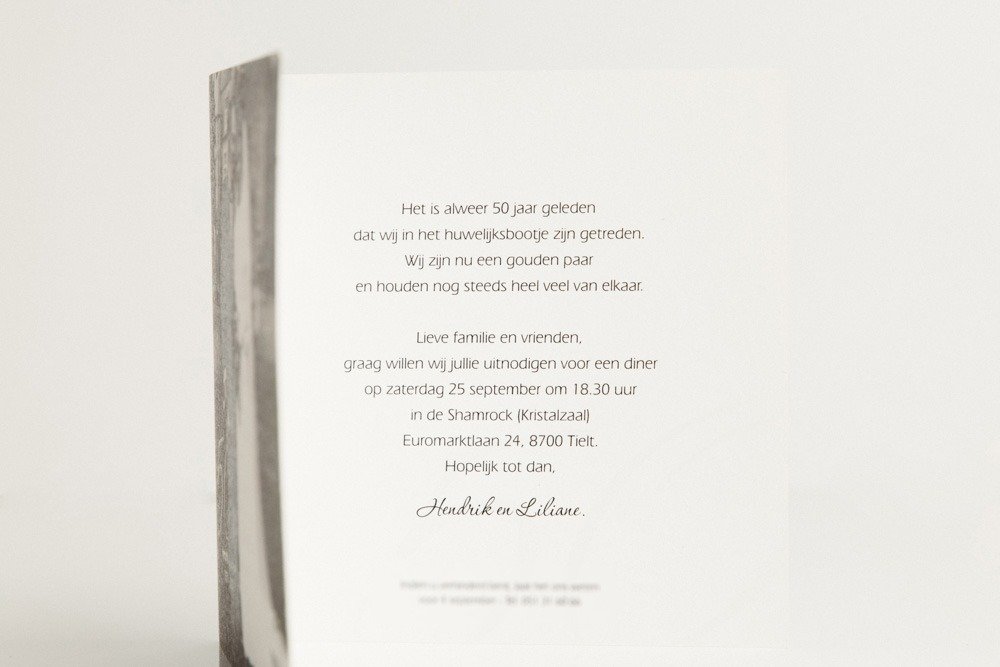 Het is alweer 50 jaar geleden
dat wij in het huwelijksbootje zijn getreden.
Wij zijn nu een gouden paar
en houden nog steeds heel veel van elkaar.
Lieve familie en vrienden,
graag willen wij jullie uitnodigen voor een diner
op zaterdag 25 september om 18.30 uur
in de Shamrock (Kristalzaal)
Euromarktlaan 24, 8700 Tielt.
Hopelijk tot dan,
Hendrik en Liliane.